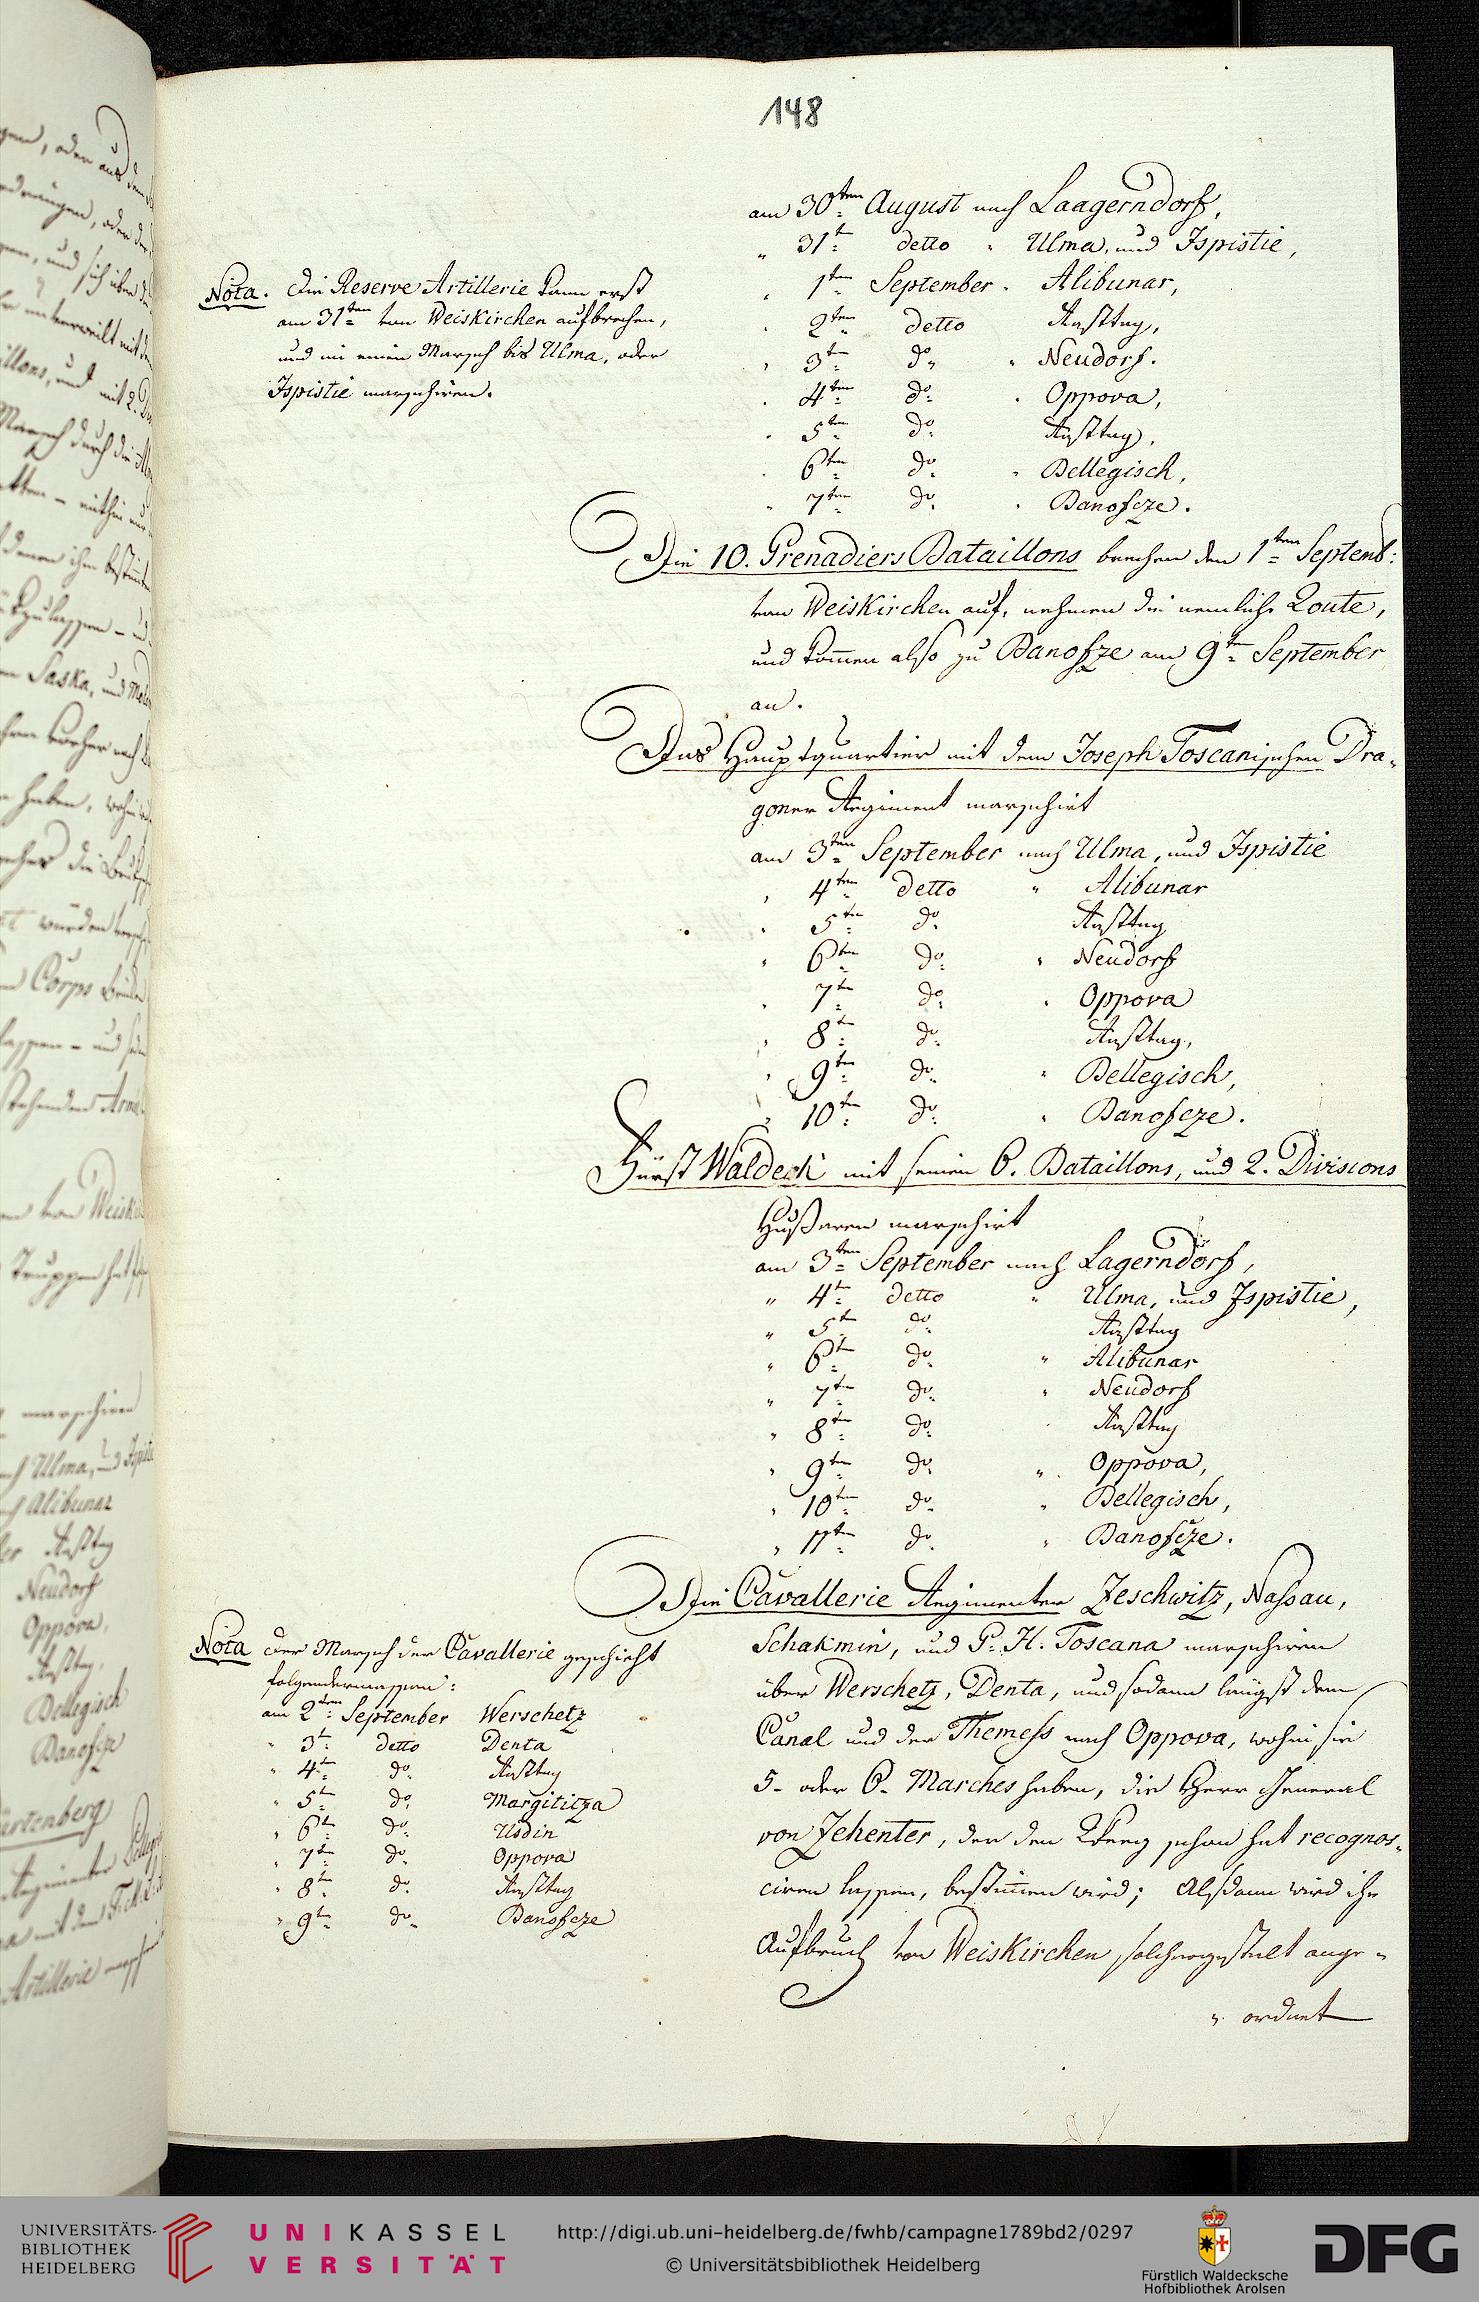 148
am 30ten August nach Laagerndorf,
„ 31t detto „ Ulma, und Ispistie,
„ 1ten September „ Alibunar,
„ 2ten detto Rasttag,
„ 3t do „ Neudorf.
„ 4ten do „ Oppova,
„ 5ten do Rasttag,
„ 6ten do „ Bellegisch,
„ 7ten do „ Banofcze.
Nota. Die Reserve Artillerie kann erst
am 31ten von Weiskirchen aufbrechen,
und in einem Marsch bis Ulma, oder
Ispistie marschiren.
Die 10. Grenadiers Bataillons brechen den 1ten Septemb:
von Weiskirchen auf, nehmen die nemliche Route,
und kom̄en also zu Banofze am 9t September
an.
Das Hauptquartier mit dem Joseph Toscanischen Dra-
goner Regiment marschirt
am 3ten September nach Ulma, und Ispistie
„ 4ten detto „ Alibunar
„ 5ten do Rasttag
„ 6ten do „ Neudorf
„ 7ten do „ Oppova
„ 8t do Rasttag,
„ 9ten do „ Bellegisch,
„ 10ten do „ Banofcze.
Fürst Waldeck mit seinen 6. Bataillons, und 2. Divisions
Hußaren marschirt
am 3ten September nach Lagerndörf,
„ 4t detto „ Ulma, und Ispistie,
„ 5t do Rasttag
„ 6t do „ Alibunar
„ 7ten do „ Neudorf
„ 8ten do Rasttag
„ 9ten do „ Oppova,
„ 10ten do „ Bellegisch,
„ 11ten do „ Banofcze.
Die Cavallerie Regimenter Zeschwitz, Nassau,
Schakmin, und G. H. Toscana marschiren
über Werschetz, Denta, und sodann längst dem
Canal und der Themess nach Oppova, wohin sie
5- oder 6. Marches haben, die Herr General
von Zehenter, der den Weeg schon hat recognos-
ciren lassen, bestim̄en wird; Alsdann wird ihr
Aufbruch von Weiskirchen solchergestalt ange-
„ ordnet
Nota Der Marsch der Cavallerie geschieht
folgendermassen:
am 2ten September Werschetz
„ 3t detto Denta
„ 4t do Rasttag
„ 5t do Margititza
„ 6t do Usdin
„ 7t do Oppova
„ 8t do Rasttag
„ 9t do Banofcze
UNIVERSITÄTS-
BIBLIOTHEK
HEIDELBERG
UNIKASSEL
VERSITÄT
http://digi.ub.uni-heidelberg.de/fwhb/campagne1789bd2/0297
© Universitätsbibliothek Heidelberg
Fürstlich Waldecksche
Hofbibliothek Arolsen
DFG